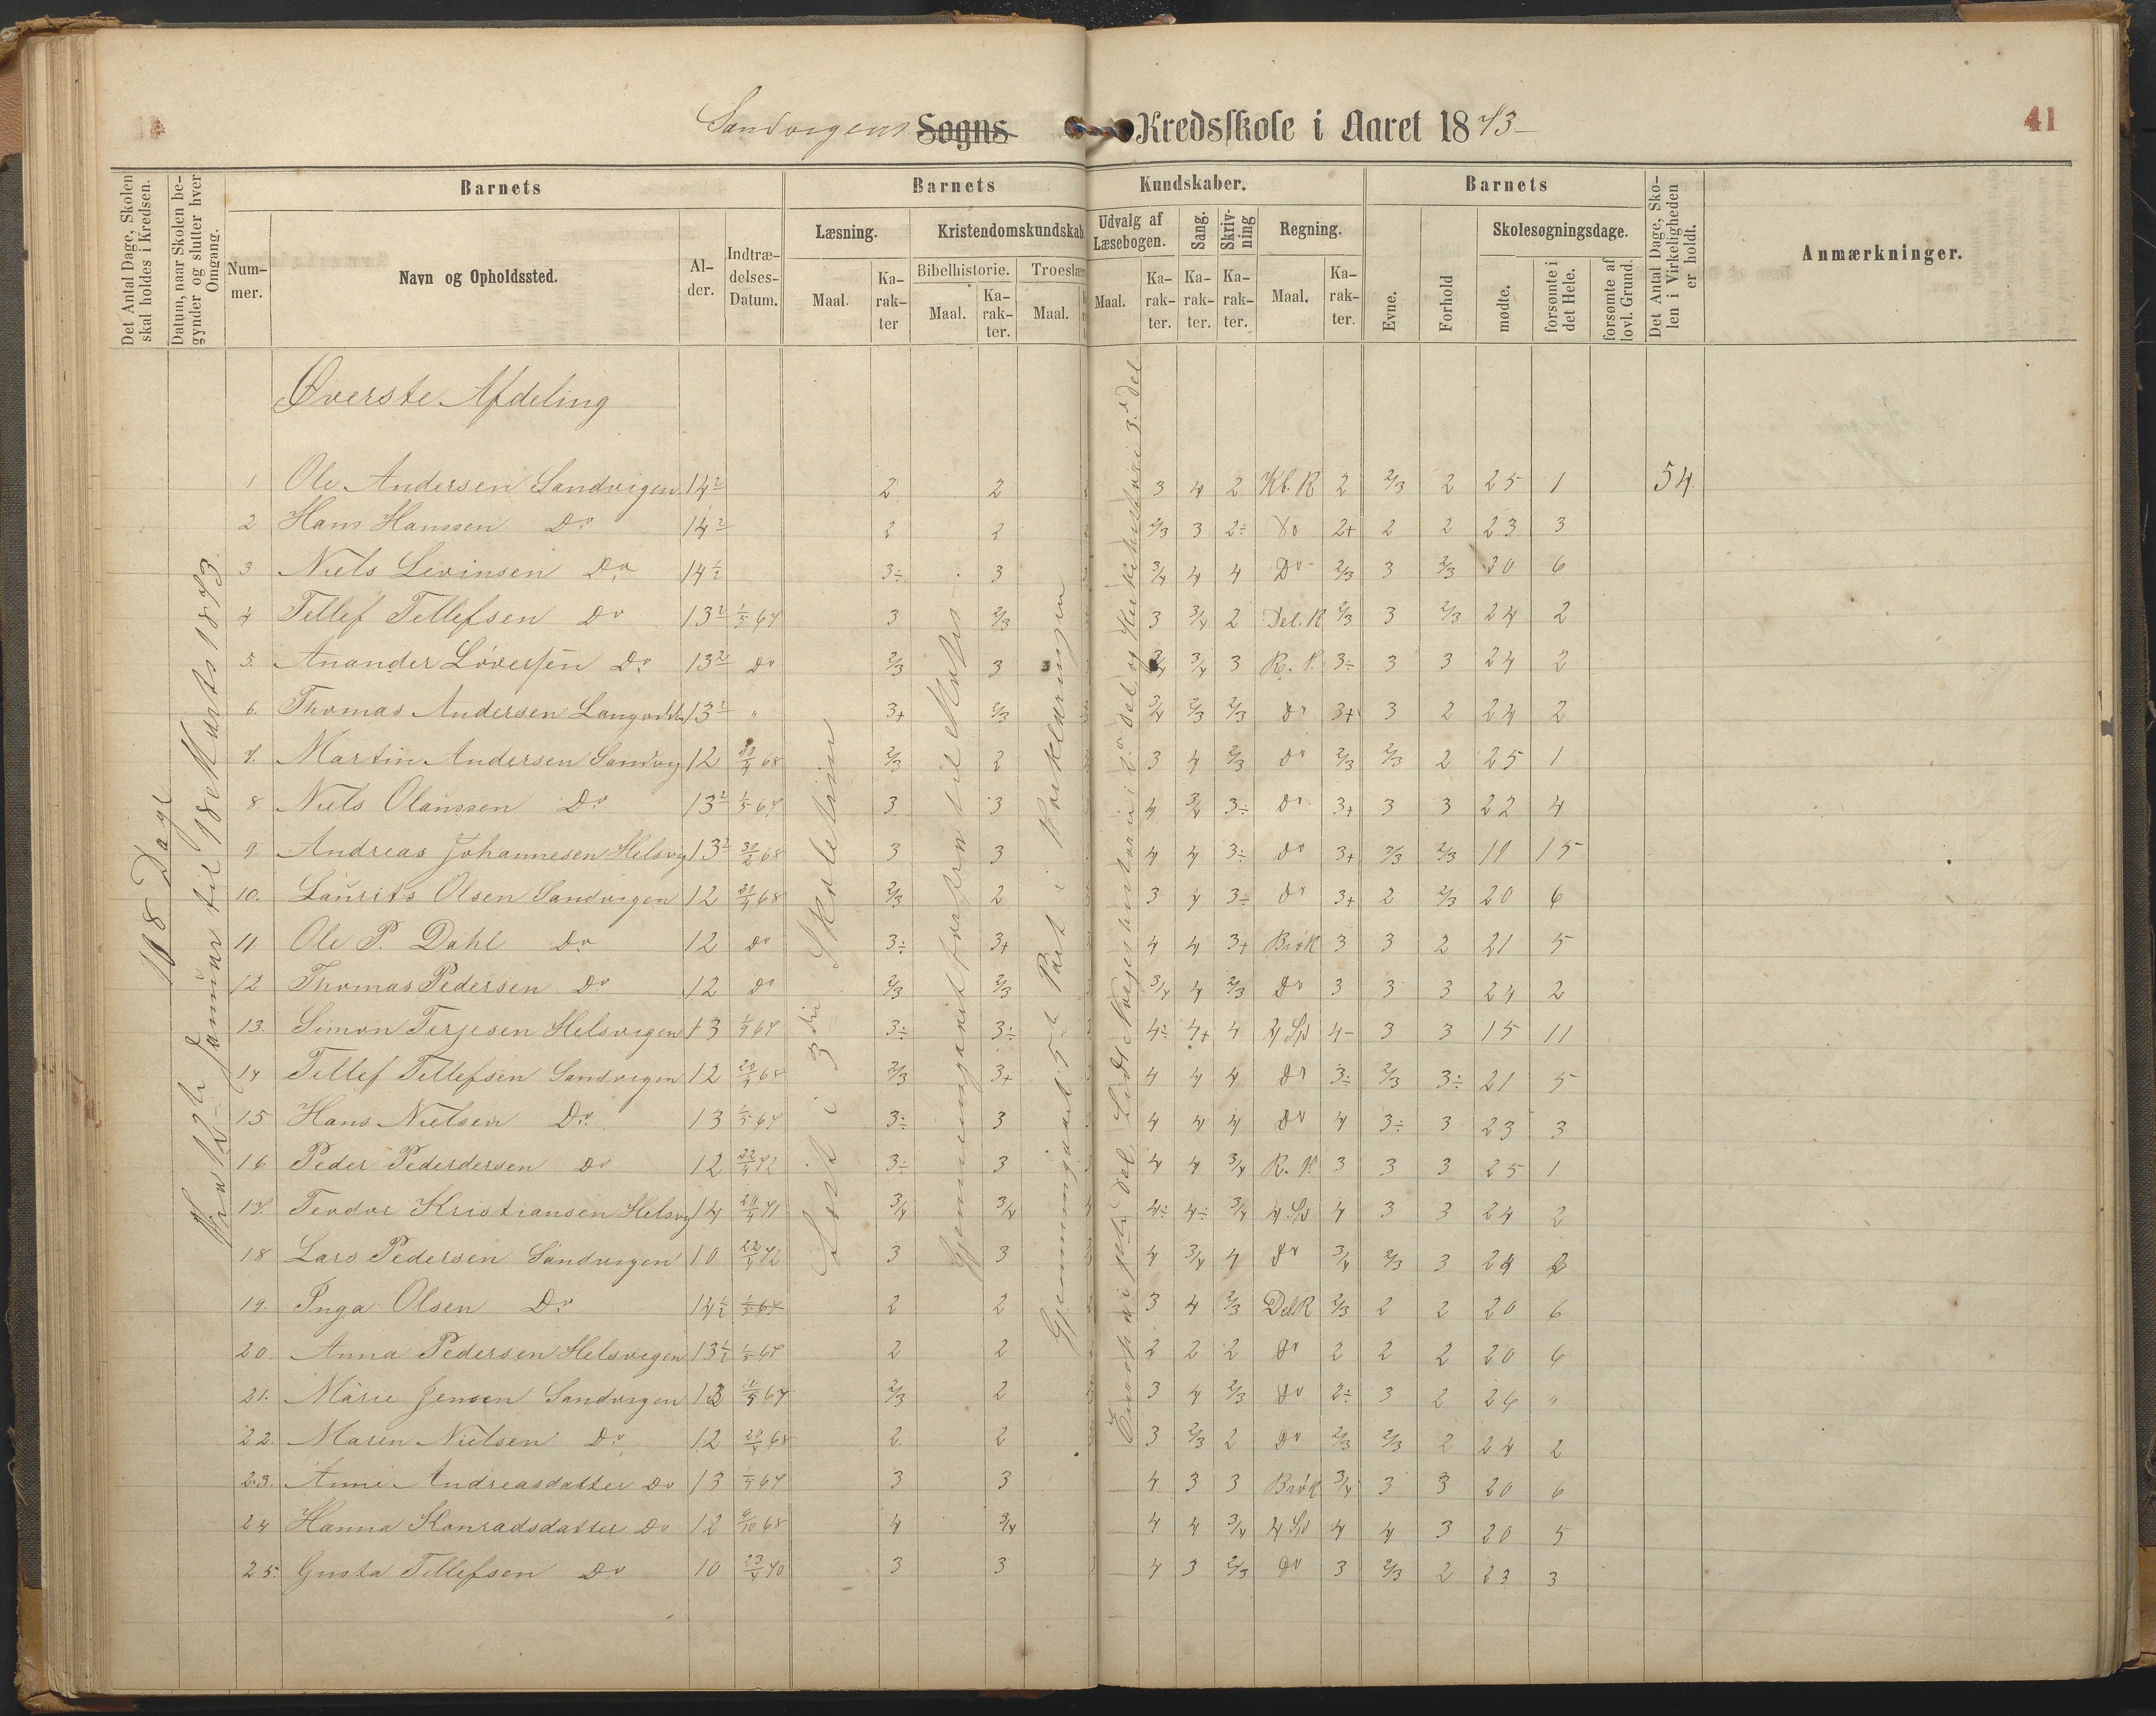 Sandvigens Sogns Kredsskole i Aaret 1873
41
Det Antal Dage, Skolen skal holdes i Kredsen.
Datum, naar Skolen begynder og slutter hver Omgang.
Barnets
Barnets
Kundskaber.
Barnets
Det Antal Dage, Skolen i Virkeligheden er holdt.
Anmærkninger.
Nummer.
Navn og Opholdssted.
Alder.
Indtrædelses-Datum.
Læsning.
Kristendomskundskab.
Udvalg af Læsebogen.
Sang.
Skrivning
Regning.
Evne.
Forhold
Skolesøgningsdage.
Maal.
Karakter
Bibelhistorie.
Troeslære
Maal.
Karakter.
Maal.
Maal.
Karakter.
Karakter.
Karakter.
Maal.
Karakter.
mødte.
forsømte i det Hele.
forsømte af lovl. Grund.
108 Dage
Fra 13de Januar til 18de Marts 1873.
Læst i 3die Skoletrin
Gjennemgaaet forfra til Moses
Gjennemgaaet 5te Part i Forklaringen
Øverste Afdeling
1 Ole Andersen Sandvigen 14½ 2 2 3 4 2 Kb. R 2 2/3 2 25 1 54
2 Hans Hanssen Do 14½ 2 2 2/3 3 2÷ Do 2+ 2 2 23 3
3 Niels Levinsen Do 14½ 3÷ 3 3/4 4 4 Do 2/3 3 2/3 20 6
4 Tellef Tellefsen Do 13½ 1/5 67 3 2/3 3 3/4 2 Del. R 2/3 3 2/3 24 2
5. Anander Løversen Do 13½ Do 2/3 3 3/4 3/4 3 R. P. 3÷ 3 3 24 2
6. Thomas Andersen 13½ " 3+ 2/3 3/4 2/3 2/3 Do 3+ 3 2 24 2
7. Martin Andersen Sandvig 12 68 2/3 2 3 4 2/3 Do 2/3 2/3 2 25 1
8. Niels Olaussen Do 13½ 1/5 67 3 3 4 3/4 3÷ Do 3+ 3 3 22 4
9. Andreas Johannesen Helsvig 13½ 68 3 3 4 4 3÷ Do 3+ 2/3 11 15
10. Laurits Olsen Sandvigen 12 68 2/3 2 3 4 3÷ Do 3+ 2 2/3 20 6
11. Ole P. Dahl Do 12 Do 3÷ 3+ 4 4 3+ Brøk 3 3 2 21 5
12 Thomas Pedersen Do 12 Do 2/3 2/3 3/4 4 2/3 Do 3 3 3 24 2
13. Simon Terjesen Helsvigen 13 67 3÷ 3÷ 4÷ 4+ 4 4 Sp 4- 3 3 15 11
14 Tellef Tellefsen Sandvigen 12 68 2/3 3+ 4 4 4 Do 3÷ 2/3 3÷ 21 5
15 Hans Nielsen Do 13 1/5 67 3÷ 3 4 4 4 Do 4 3÷ 3 23 3
16 Peder Pederdersen Do 12 22/4 72 3÷ 3 4 4 3/4 R. P. 3 3 3 25 1
17. Teodor Kristiansen Helsvg 14 20/4 71 3/4 3/4 4÷ 4÷ 3/4 4 Sp 4 3 3 24 2
18 Lars Pedersen Sandvigen 10 22/4 72 3 3 4 3/4 4 Do 3/4 2/3 3 24 2
19. Inga Olsen Do 14½ 1/5 67 2 2 3 4 2/3 Del R 2/3 2 2 20 6
20. Anna Pedersen Helsvigen 13½ 1/5 67 2 2 2 2 2 Do 2 2 2 20 6
21. Marie Jensen Sandvigen 13 67 2/3 2 3 4 2/3 Do 2÷ 3 2 26 "
22. Maren Nielsen Do 12 68 2 2 3 2/3 2 Do 2/3 2/3 2 24 2
23. Anne Andreasdatter Do 13 1/5 67 3 3 4 3 3 Brøk 3/4 3 3 20 6
24 Hanna Konradsdatter Do 12 6/10 68 4 3/4 4 4 3/4 4 Sp 4 4 3 20 5
25. Gusta Tellefsen Do 10 23/4 70 3 3 4 3 2/3 Do 3 2/3 2 23 3